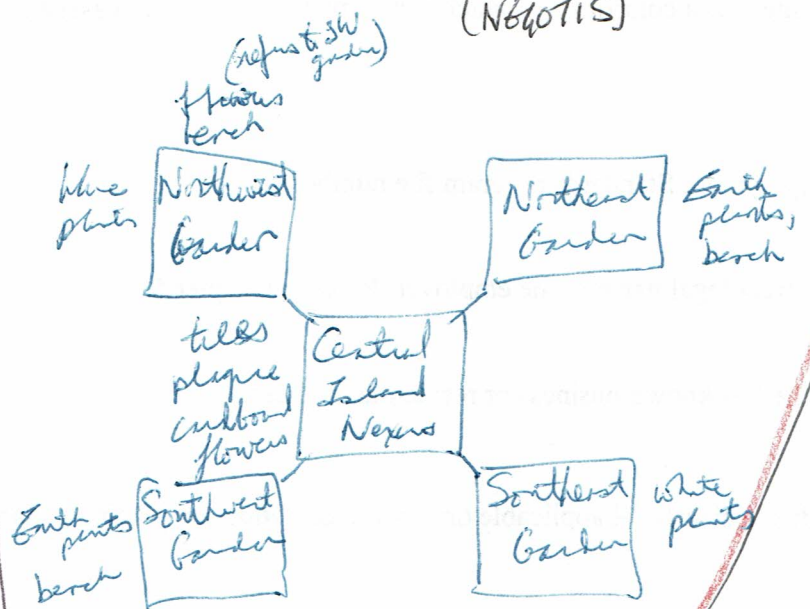 (NEGOTIS)
(refers to SW
garden)
bench
blue
plants
Northwest
Garden
Northeast
Garden
Earth
plants,
bench
tiles
plaque
cardboard
flowers
Central
Island
Nexus
Earth
plants
bench
Southwest
Garden
Southeast
Garden
white
plants